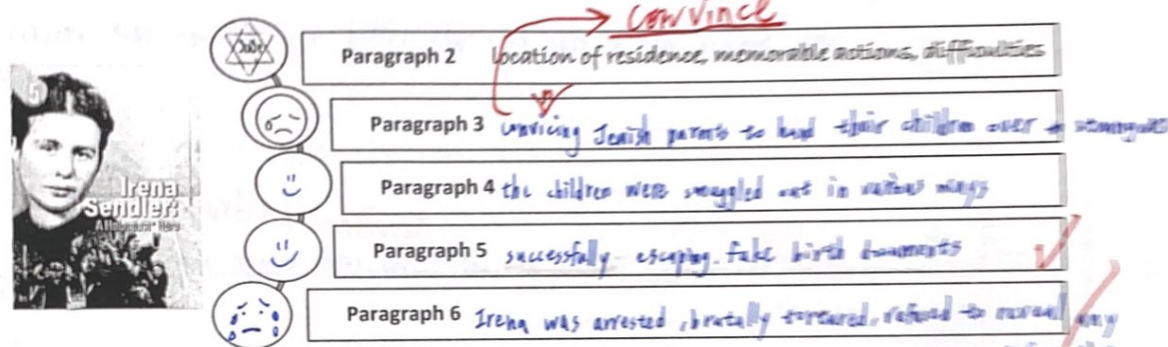 convince
Paragraph 2 location of residence, memorable actions, difficulties
Paragraph 3 convicing Jewish parents to hand their children over
Paragraph 4 the children were smuggled out in various
Irena
Sendler:
Paragraph 5 successfully escaping. fake birth documents
Paragraph 6 Irena was arrested, brutally tortured, refused to reveal any